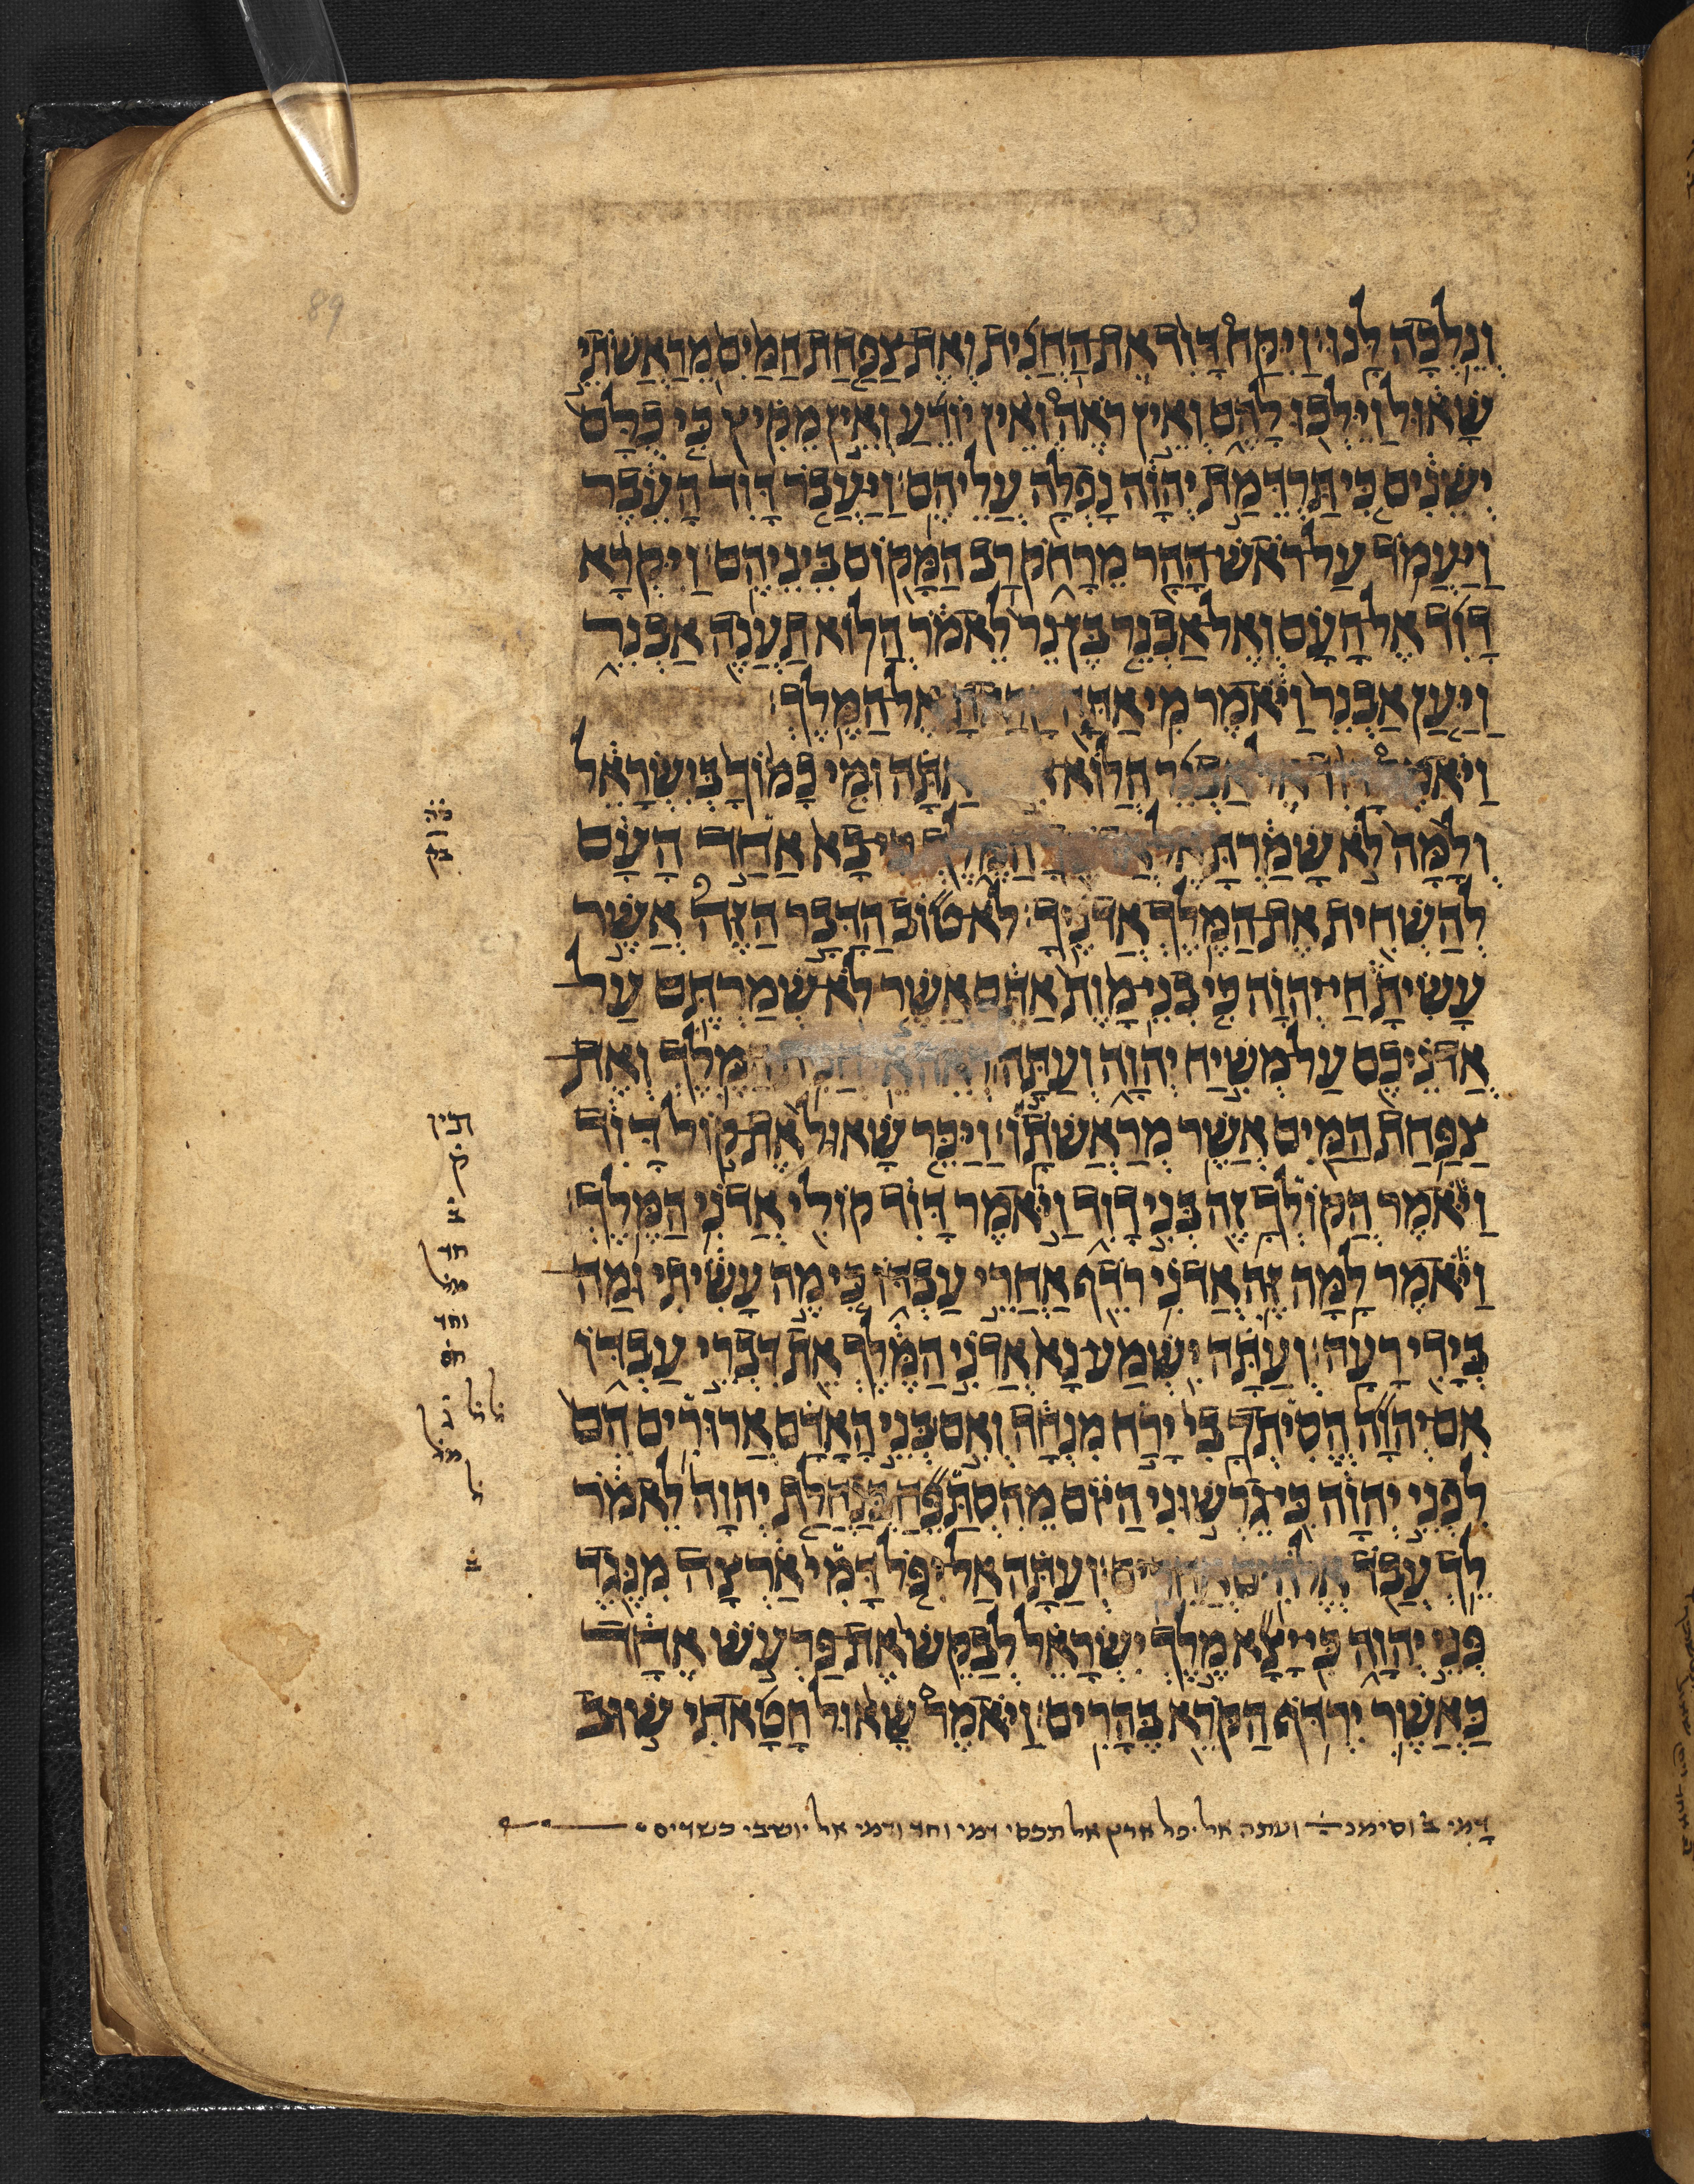 ונלכה לנו׃ ויקח דוד את־החנית ואת־צפחת המים מראשתי
שאול וילכו להם ואין ראה ואין יודע ואין מקיץ כי כלם
ישנים כי תרדמת יהוה נפלה עליהם׃ ויעבר דוד העבר
ויעמד על־ראש־ההר מרחק רב המקום ביניהם׃ ויקרא
דוד אל־העם ואל־אבנר בן־נר לאמר הלוא תענה אבנר
ויען אבנר ויאמר מי אתה אל־המלך׃
ויאמר אל־אבנר הלוא אתה ומי כמוך בישראל
ולמה לא שמרת המלך כי־בא אחד העם
להשחית את־המלך אדניך׃ לא־טוב הדבר הזה אשר
עשית חי־יהוה כי בני־מות אתם אשר לא־שמרתם על־
אדניכם על־משיח יהוה ועתה המלך ואת־
צפחת המים אשר מראשתו׃ ויכר שאול את־קול דוד
ויאמר הקולך זה בני דוד ויאמר דוד קולי אדני המלך׃
ויאמר למה זה אדני רדף אחרי עבדו כי מה עשיתי ומה־
בידי רעה׃ ועתה ישמע־נא אדני המלך את דברי עבדו
אם־יהוה הסיתך בי ירח מנחה ואם בני האדם ארורים הם
לפני יהוה כי־גרשוני היום מהסתפח בנחלת יהוה לאמר
לך עבד אלהים אחרים׃ ועתה אל־יפל דמי ארצה מנגד
פני יהוה כי־יצא מלך ישראל לבקש את־פרעש אחד
כאשר ירדף הקרא בהרים׃ ויאמר שאול חטאתי שוב
תין
ק
ב
חד
מל
וחד
חס
ג
מל
ל
ב
דמי ב וסימנ ועתה אל יפל ארץ אל תכסי דמי וחד ודמי אל יושבי כשדים
89